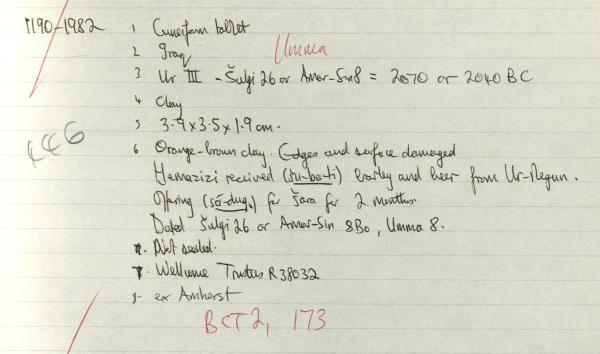 1190-1982
1 Cuneiform tablet
2 Iraq Umma
3 Ur III - Šulgi 26 or Amar-Sin 8 = 2070 or 2040 BC
4 Clay
446
5 3.9 x 3.5 x 1.9 cm.
6 Orange-brown clay. Edges and surface damaged
Hemazizi received (šu-ba-ti) barley and beer from Ur-Negun.
Offering (sá-dug₄) for Šara for 2 months.
Dated Šulgi 26 or Amar-Sin 8 Bo, Umma 8.
Not sealed.
7. Wellcome Trustees R 38032
8- ex Amherst
BCT2, 173